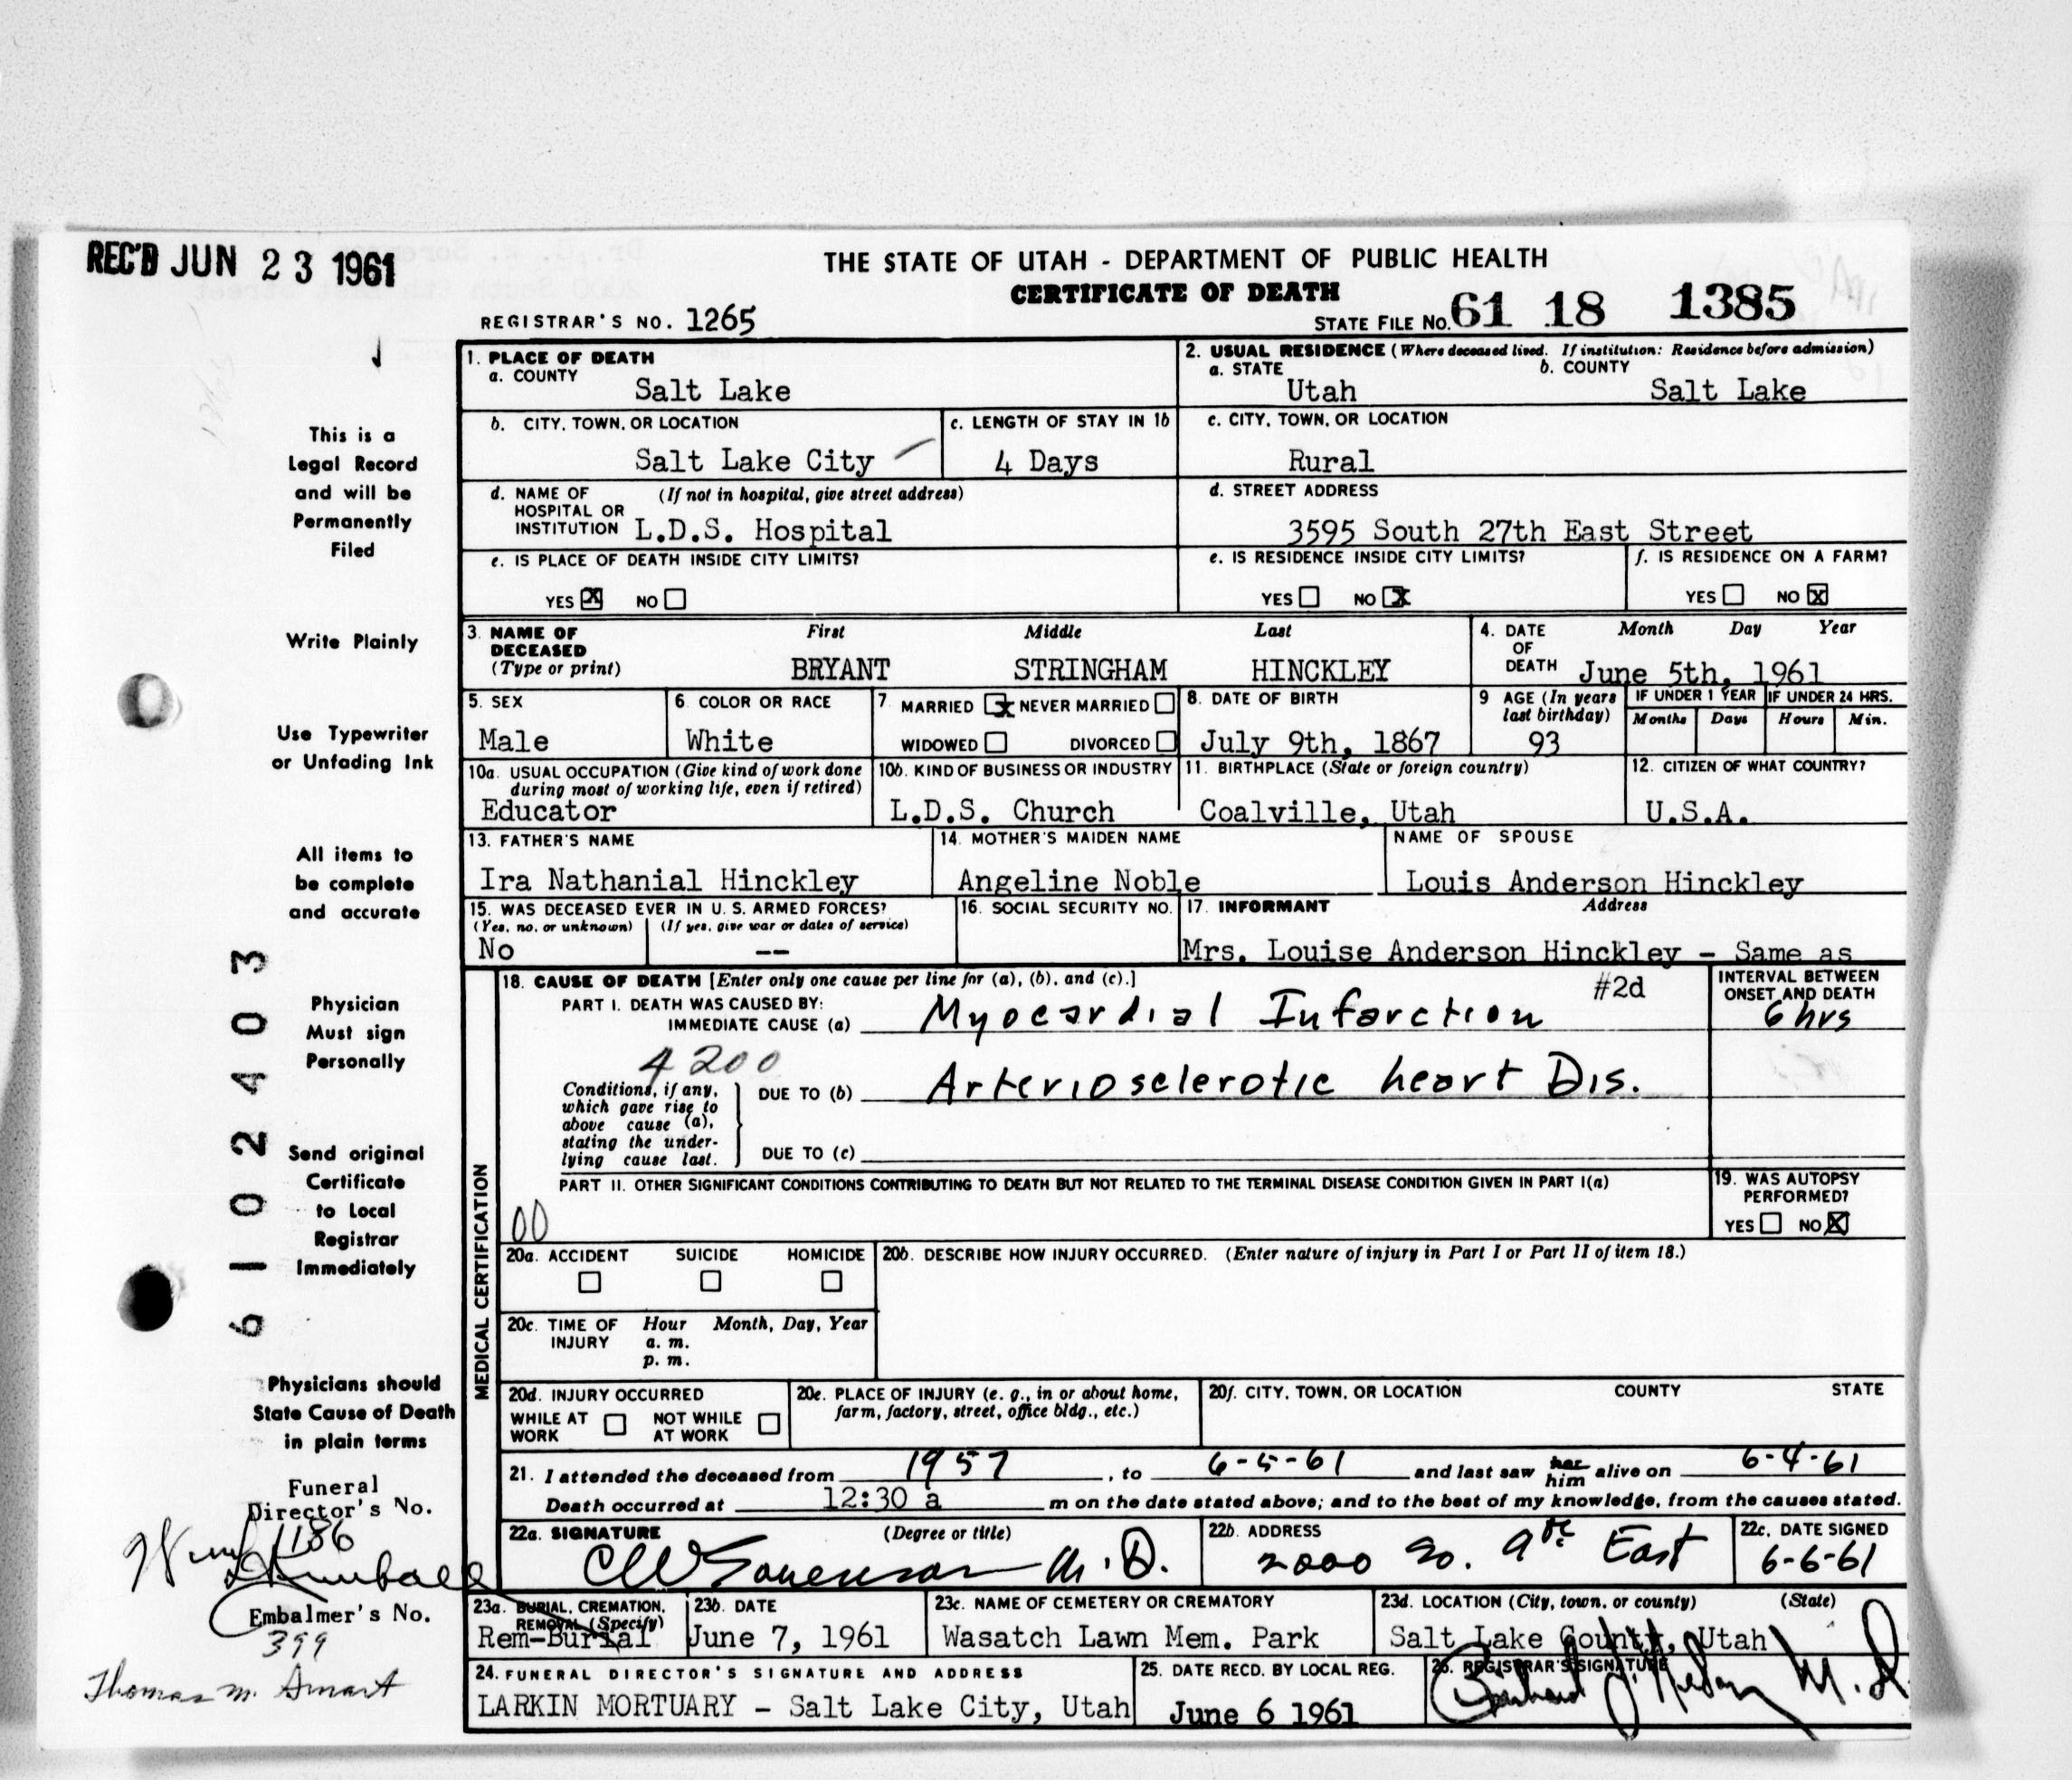 REC'D JUN 23 1961
THE STATE OF UTAH - DEPARTMENT OF PUBLIC HEALTH
CERTIFICATE OF DEATH
REGISTRAR'S NO. 1265
STATE FILE NO. 61 18 1385
This is a
Legal Record
and will be
Permanently
Filed
Write Plainly
Use Typewriter
or Unfading Ink
All items to
be complete
and accurate
Physician
Must sign
Personally
Send original
Certificate
to Local
Registrar
Immediately
Physicians should
State Cause of Death
in plain terms
Funeral
Director's No.
1186
Kimball
Embalmer's No.
399
Thomas M. Smart
61 02403
1. PLACE OF DEATH
a. COUNTY
Salt Lake
2. USUAL RESIDENCE (Where deceased lived. If institution: Residence before admission)
a. STATE b. COUNTY
Utah Salt Lake
b. CITY, TOWN, OR LOCATION
Salt Lake City
c. LENGTH OF STAY IN 1b
4 Days
c. CITY, TOWN, OR LOCATION
Rural
d. NAME OF (If not in hospital, give street address)
HOSPITAL OR
INSTITUTION L.D.S. Hospital
d. STREET ADDRESS
3595 South 27th East Street
e. IS PLACE OF DEATH INSIDE CITY LIMITS?
YES X NO
e. IS RESIDENCE INSIDE CITY LIMITS?
YES NO X
f. IS RESIDENCE ON A FARM?
YES NO X
3. NAME OF First Middle Last
DECEASED
(Type or print) BRYANT STRINGHAM HINCKLEY
4. DATE Month Day Year
OF
DEATH June 5th, 1961
5. SEX
Male
6. COLOR OR RACE
White
7 MARRIED X NEVER MARRIED
WIDOWED DIVORCED
8. DATE OF BIRTH
July 9th, 1867
9 AGE (In years
last birthday)
93
IF UNDER 1 YEAR IF UNDER 24 HRS.
Months Days Hours Min.
10a. USUAL OCCUPATION (Give kind of work done
during most of working life, even if retired)
Educator
10b. KIND OF BUSINESS OR INDUSTRY
L.D.S. Church
11. BIRTHPLACE (State or foreign country)
Coalville, Utah
12. CITIZEN OF WHAT COUNTRY?
U.S.A.
13. FATHER'S NAME
Ira Nathanial Hinckley
14. MOTHER'S MAIDEN NAME
Angeline Noble
NAME OF SPOUSE
Louis Anderson Hinckley
15. WAS DECEASED EVER IN U. S. ARMED FORCES?
(Yes, no, or unknown) (If yes, give war or dates of service)
No --
16. SOCIAL SECURITY NO.
17. INFORMANT Address
Mrs. Louise Anderson Hinckley - Same as
#2d
MEDICAL CERTIFICATION
18. CAUSE OF DEATH [Enter only one cause per line for (a), (b), and (c).]
PART I. DEATH WAS CAUSED BY:
IMMEDIATE CAUSE (a) Myocardial Infarction
INTERVAL BETWEEN
ONSET AND DEATH
6 hrs
4200
Conditions, if any,
which gave rise to
above cause (a),
stating the under-
lying cause last.
DUE TO (b) Arteriosclerotic heart Dis.
DUE TO (c)
PART II. OTHER SIGNIFICANT CONDITIONS CONTRIBUTING TO DEATH BUT NOT RELATED TO THE TERMINAL DISEASE CONDITION GIVEN IN PART I(a)
00
19. WAS AUTOPSY
PERFORMED?
YES NO X
20a. ACCIDENT SUICIDE HOMICIDE
20b. DESCRIBE HOW INJURY OCCURRED. (Enter nature of injury in Part I or Part II of item 18.)
20c. TIME OF Hour Month, Day, Year
INJURY a. m.
p. m.
20d. INJURY OCCURRED
WHILE AT NOT WHILE
WORK AT WORK
20e. PLACE OF INJURY (e. g., in or about home,
farm, factory, street, office bldg., etc.)
20f. CITY, TOWN, OR LOCATION COUNTY STATE
21. I attended the deceased from 1957, to 6-5-61 and last saw her him alive on 6-4-61
Death occurred at 12:30 a m on the date stated above; and to the best of my knowledge, from the causes stated.
22a. SIGNATURE (Degree or title)
CW Sorenson M.D.
22b. ADDRESS
2000 So. 9th East
22c. DATE SIGNED
6-6-61
23a. BURIAL, CREMATION,
REMOVAL (Specify)
Rem-Burial
23b. DATE
June 7, 1961
23c. NAME OF CEMETERY OR CREMATORY
Wasatch Lawn Mem. Park
23d. LOCATION (City, town, or county) (State)
Salt Lake County, Utah
24. FUNERAL DIRECTOR'S SIGNATURE AND ADDRESS
LARKIN MORTUARY - Salt Lake City, Utah
25. DATE RECD. BY LOCAL REG.
June 6 1961
26. REGISTRAR'S SIGNATURE
M.D.